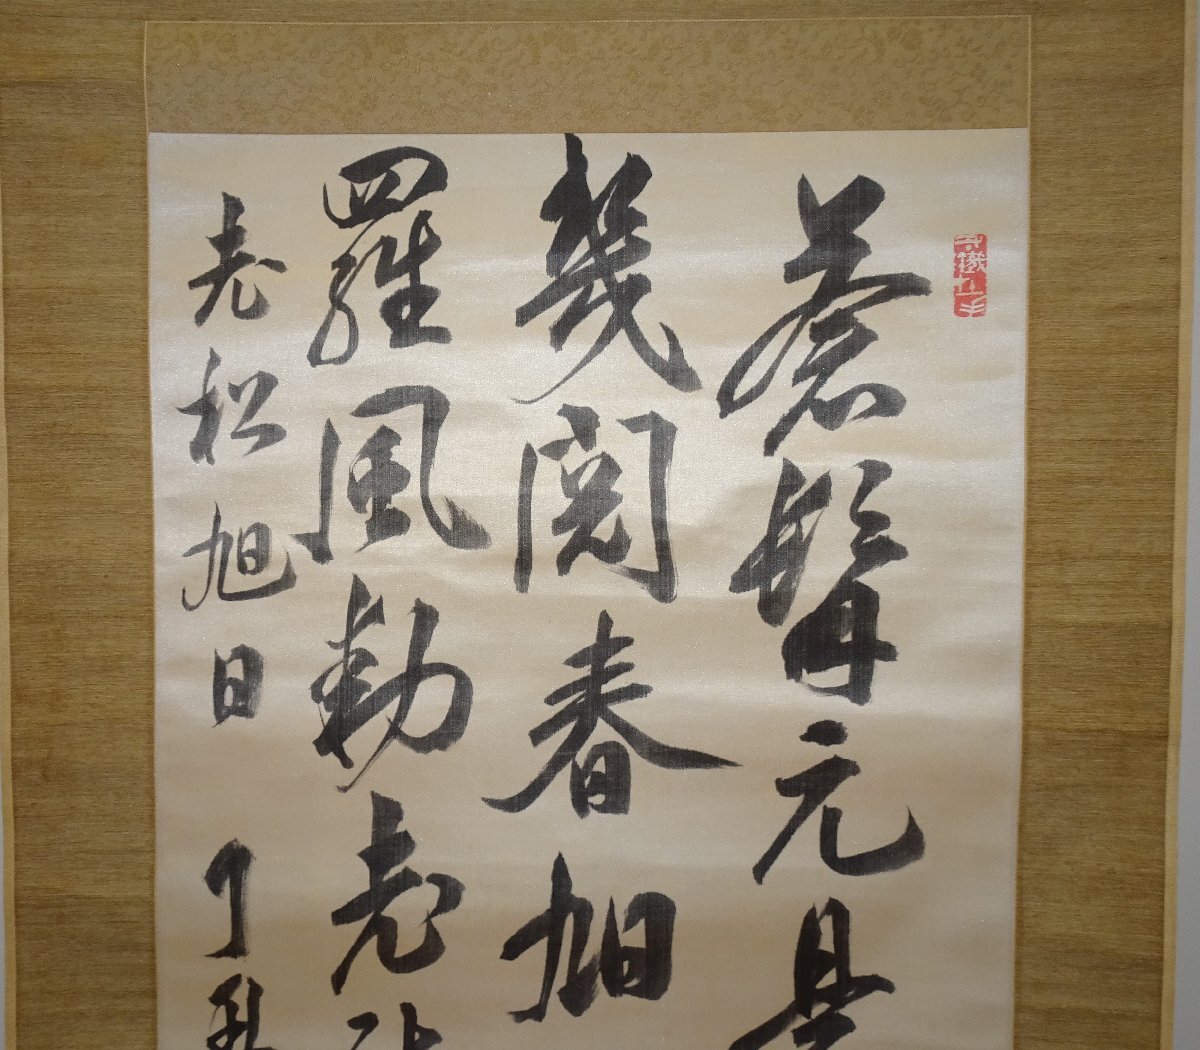 蒼髯元是
幾閲春旭
羅風勅老
老松旭日